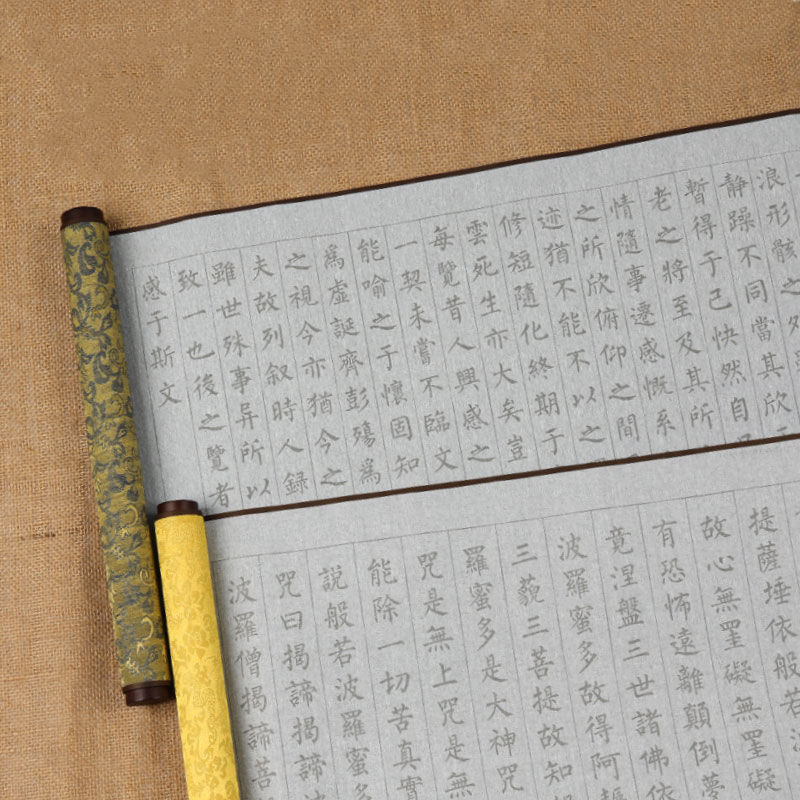 浪形骸之外
靜躁不同當其欣
暫得于己快然自
老之將至及其所
情隨事遷感慨系
之所欣俯仰之間
迹猶不能不以之
修短隨化終期于
雲死生亦大矣豈
每覽昔人興感之
一契未嘗不臨文
能喻之于懷固知
爲虛誕齊彭殤爲
之視今亦猶今之
夫故列叙時人録
雖世殊事异所以
致一也後之覽者
感于斯文
提薩埵依般若
故心無罣礙無罣礙
有恐怖遠離顛倒夢
竟涅盤三世諸佛依
波羅蜜多故得阿
三藐三菩提故知
羅蜜多是大神咒
咒是無上咒是無
能除一切苦真實
説般若波羅蜜多
咒曰揭諦揭諦
波羅僧揭諦菩